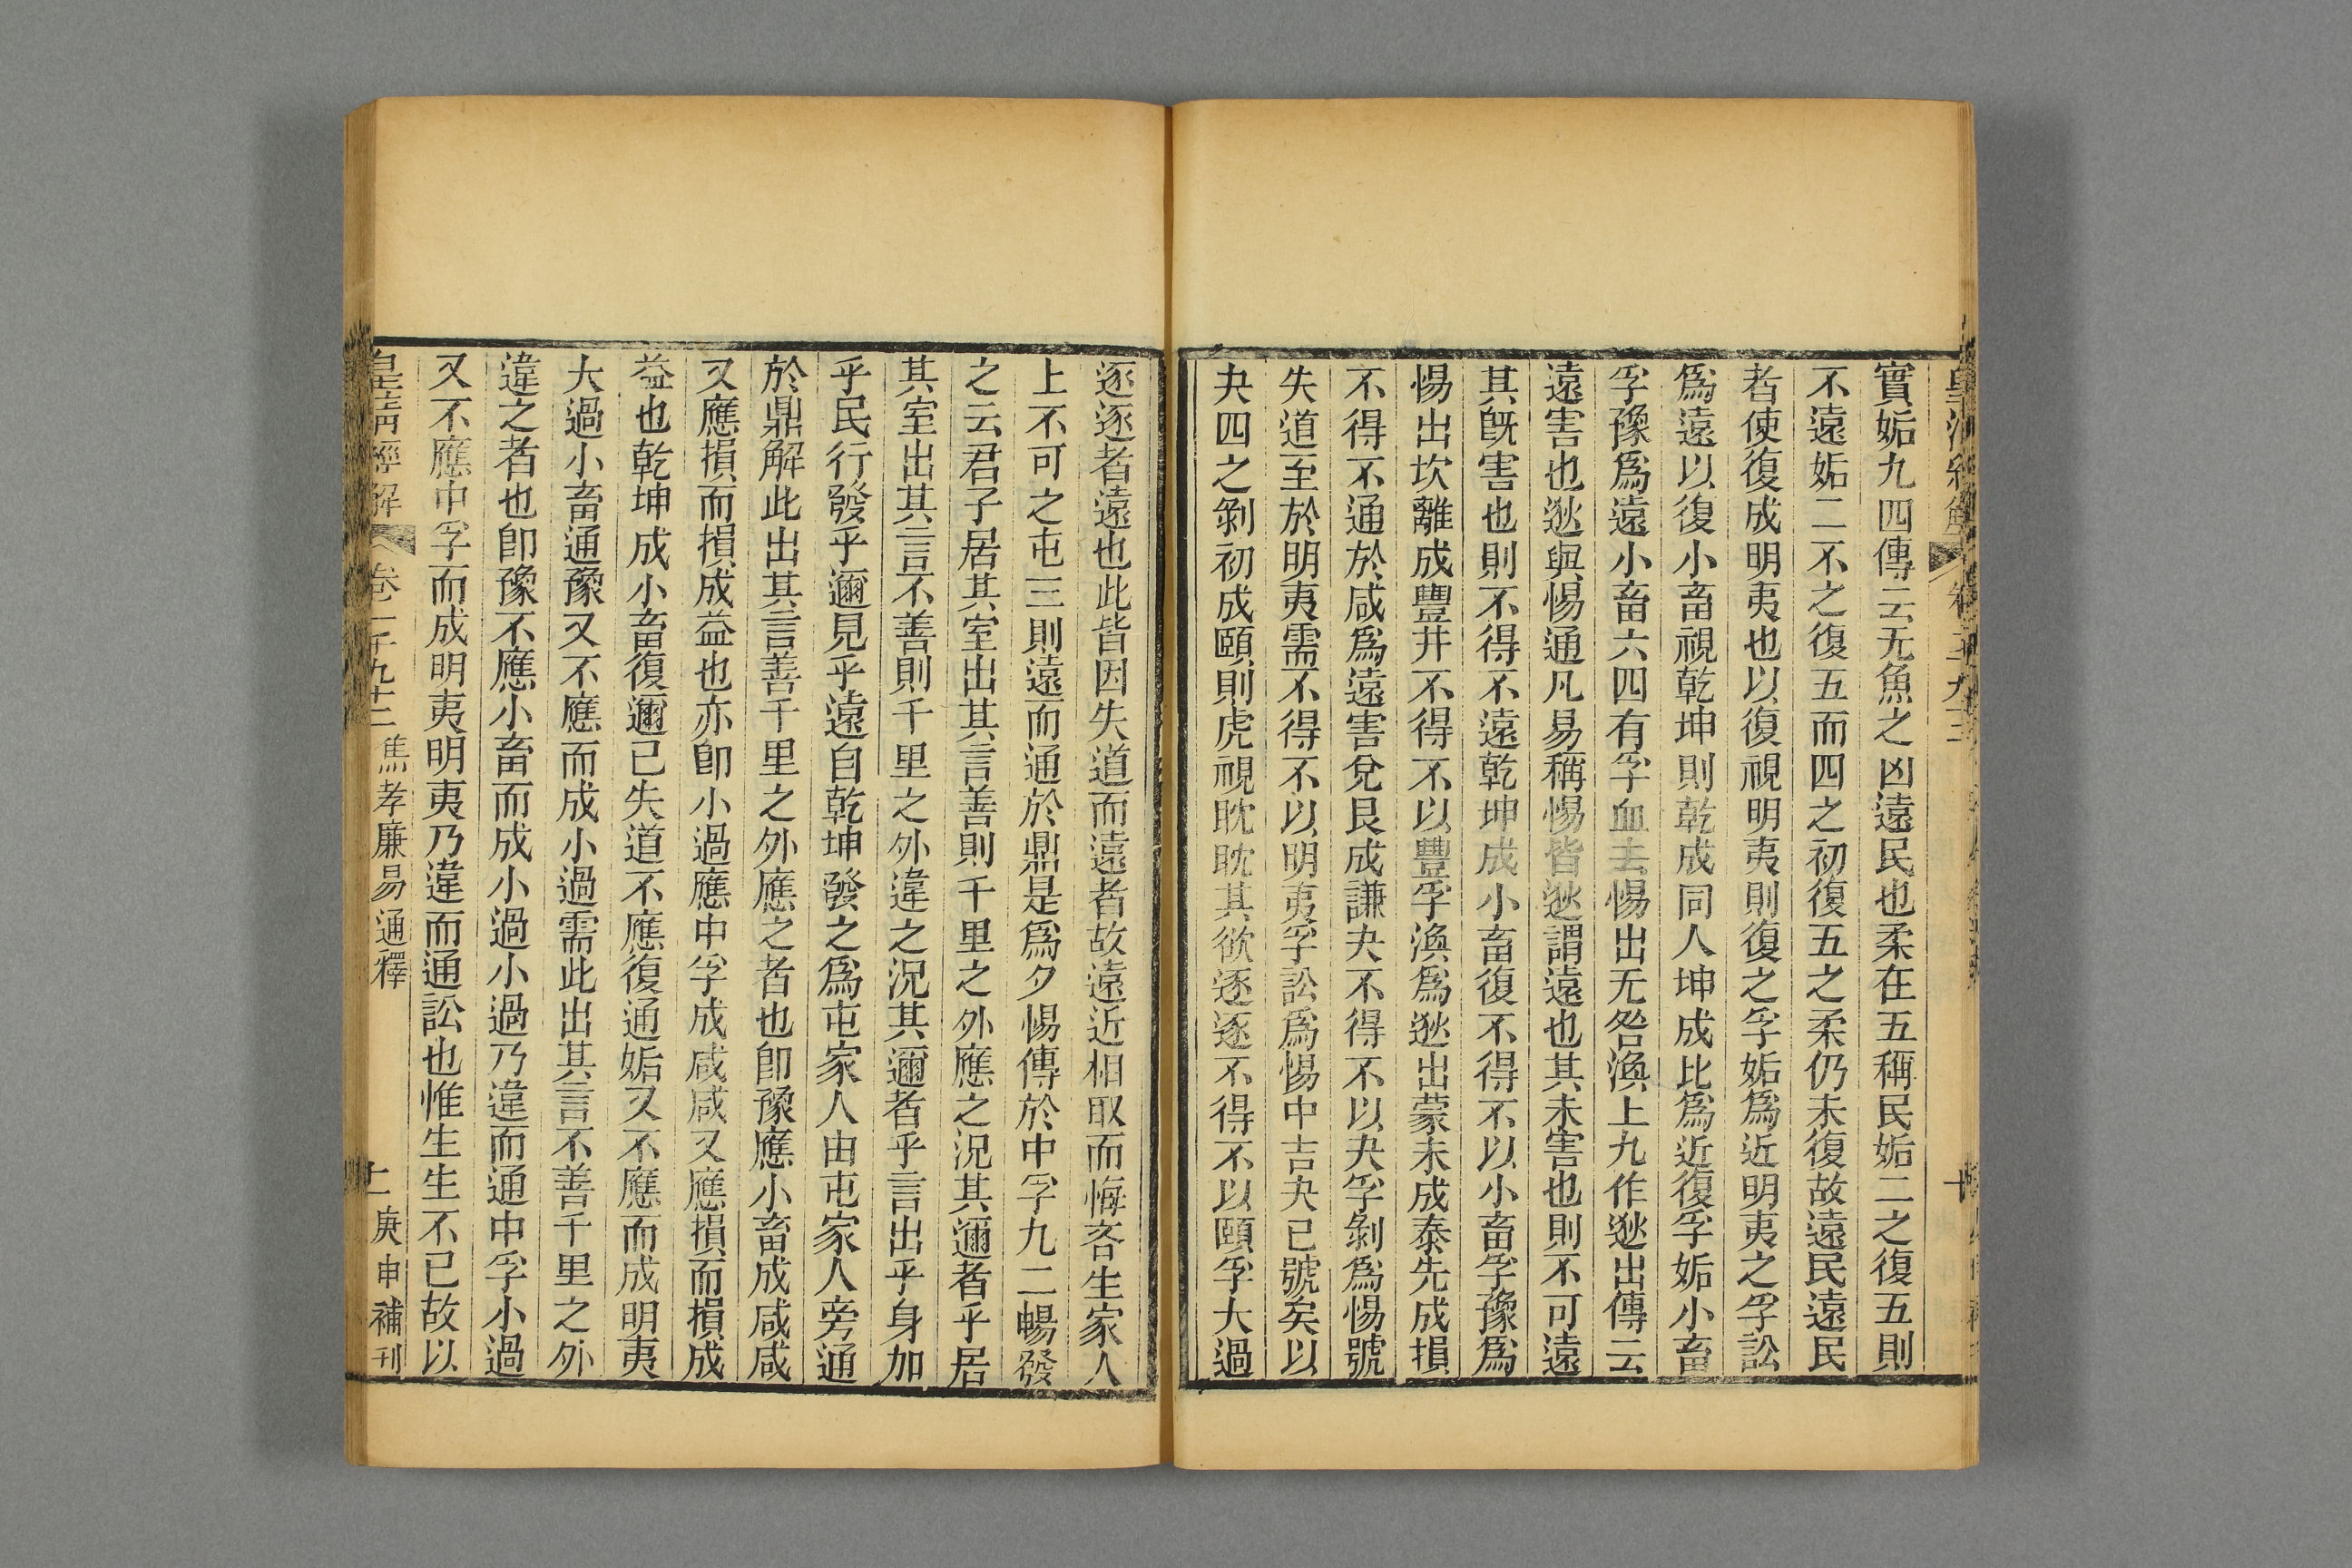 實姤九四傳云无魚之凶遠民也柔在五稱民姤二之復五則
不遠姤二不之復五而四之初復五之柔仍未復故遠民遠民
者使復成明夷也以復視明夷則復之孚姤爲近明夷之孚訟
爲遠以復小畜視乾坤則乾成同人坤成比爲近復孚姤小畜
孚豫爲遠小畜六四有孚血去惕出无咎渙上九作逖出傳云
遠害也逖與惕通凡易稱惕皆逖謂遠也其未害也則不可遠
其旣害也則不得不遠乾坤成小畜復不得不以小畜孚豫爲
惕出坎離成豐井不得不以豐孚渙爲逖出蒙未成泰先成損
不得不通於咸爲遠害兌艮成謙夬不得不以夬孚剝爲惕號
失道至於明夷需不得不以明夷孚訟爲惕中吉夬已號矣以
夬四之剝初成頤則虎視眈眈其欲逐逐不得不以頤孚大過
逐逐者遠也此皆因失道而遠者故遠近相取而悔吝生家人
上不可之屯三則遠而通於鼎是爲夕惕傳於中孚九二暢發
之云君子居其室出其言善則千里之外應之況其邇者乎居
其室出其言不善則千里之外違之況其邇者乎言出乎身加
乎民行發乎邇見乎遠自乾坤發之爲屯家人由屯家人旁通
於鼎解此出其言善千里之外應之者也卽豫應小畜成咸咸
又應損而損成益也亦卽小過應中孚成咸咸又應損而損成
益也乾坤成小畜復邇已失道不應復通姤又不應而成明夷
大過小畜通豫又不應而成小過需此出其言不善千里之外
違之者也卽豫不應小畜而成小過小過乃違而通中孚小過
又不應中孚而成明夷明夷乃違而通訟也惟生生不已故以
皇清經解 卷一千九十二 焦孝廉易通釋 十一 庚申補刊